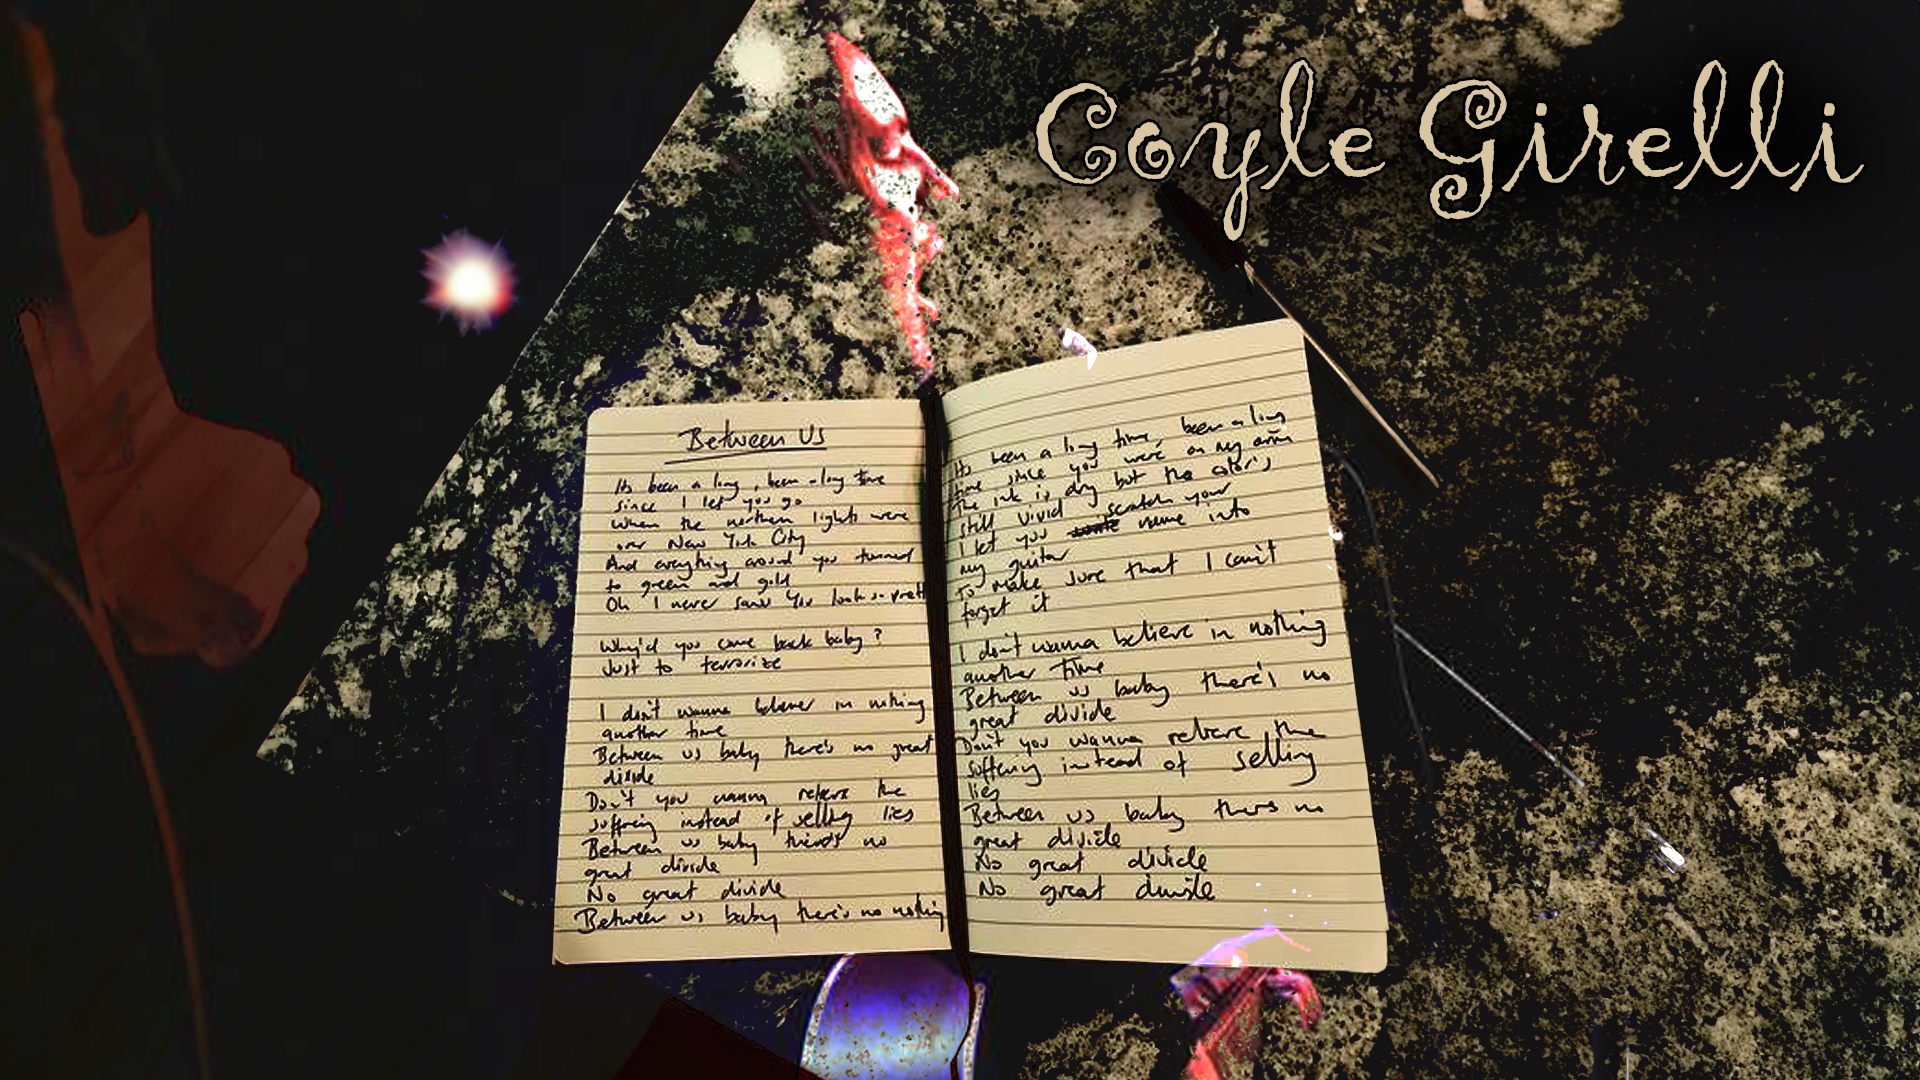 Coyle Girelli
Between Us
Its been a long, been a long time
since I let you go
When the northern lights were
over New York City
And everything around you turned
to green and gold
Oh I never saw you look so pretty
Why'd you come back baby?
Just to terrorize
I don't wanna believe in nothing
another time
Between us baby there's no great
divide
Don't you wanna relieve the
suffering instead of selling lies
Between us baby there's no
great divide
No great divide
Between us baby there's no nothing
Its been a long time, been a long
time since you were on my arm
The ink is dry but the color's
still vivid
I let you scratch your
name into
my guitar
To make sure that I can't
forget it
I don't wanna believe in nothing
another time
Between us baby there's no
great divide
Don't you wanna relieve the
suffering instead of selling
lies
Between us baby theres no
great divide
No great divide
No great divide